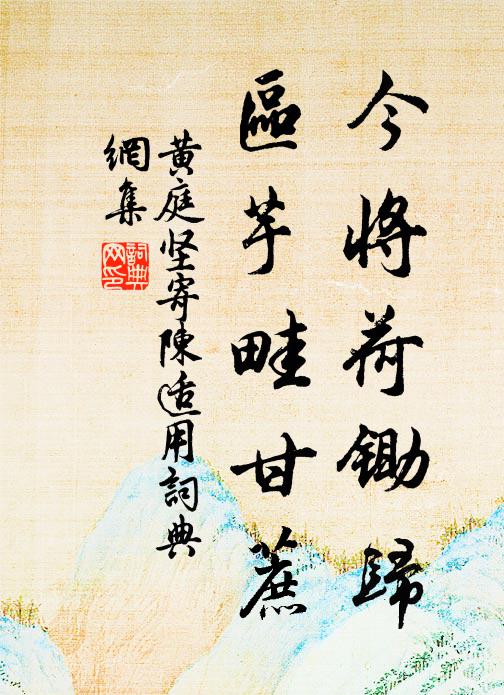 今将荷锄歸
區芋畦甘蔗
黄庭坚寄陳适用詞典
網集
詞典
网印